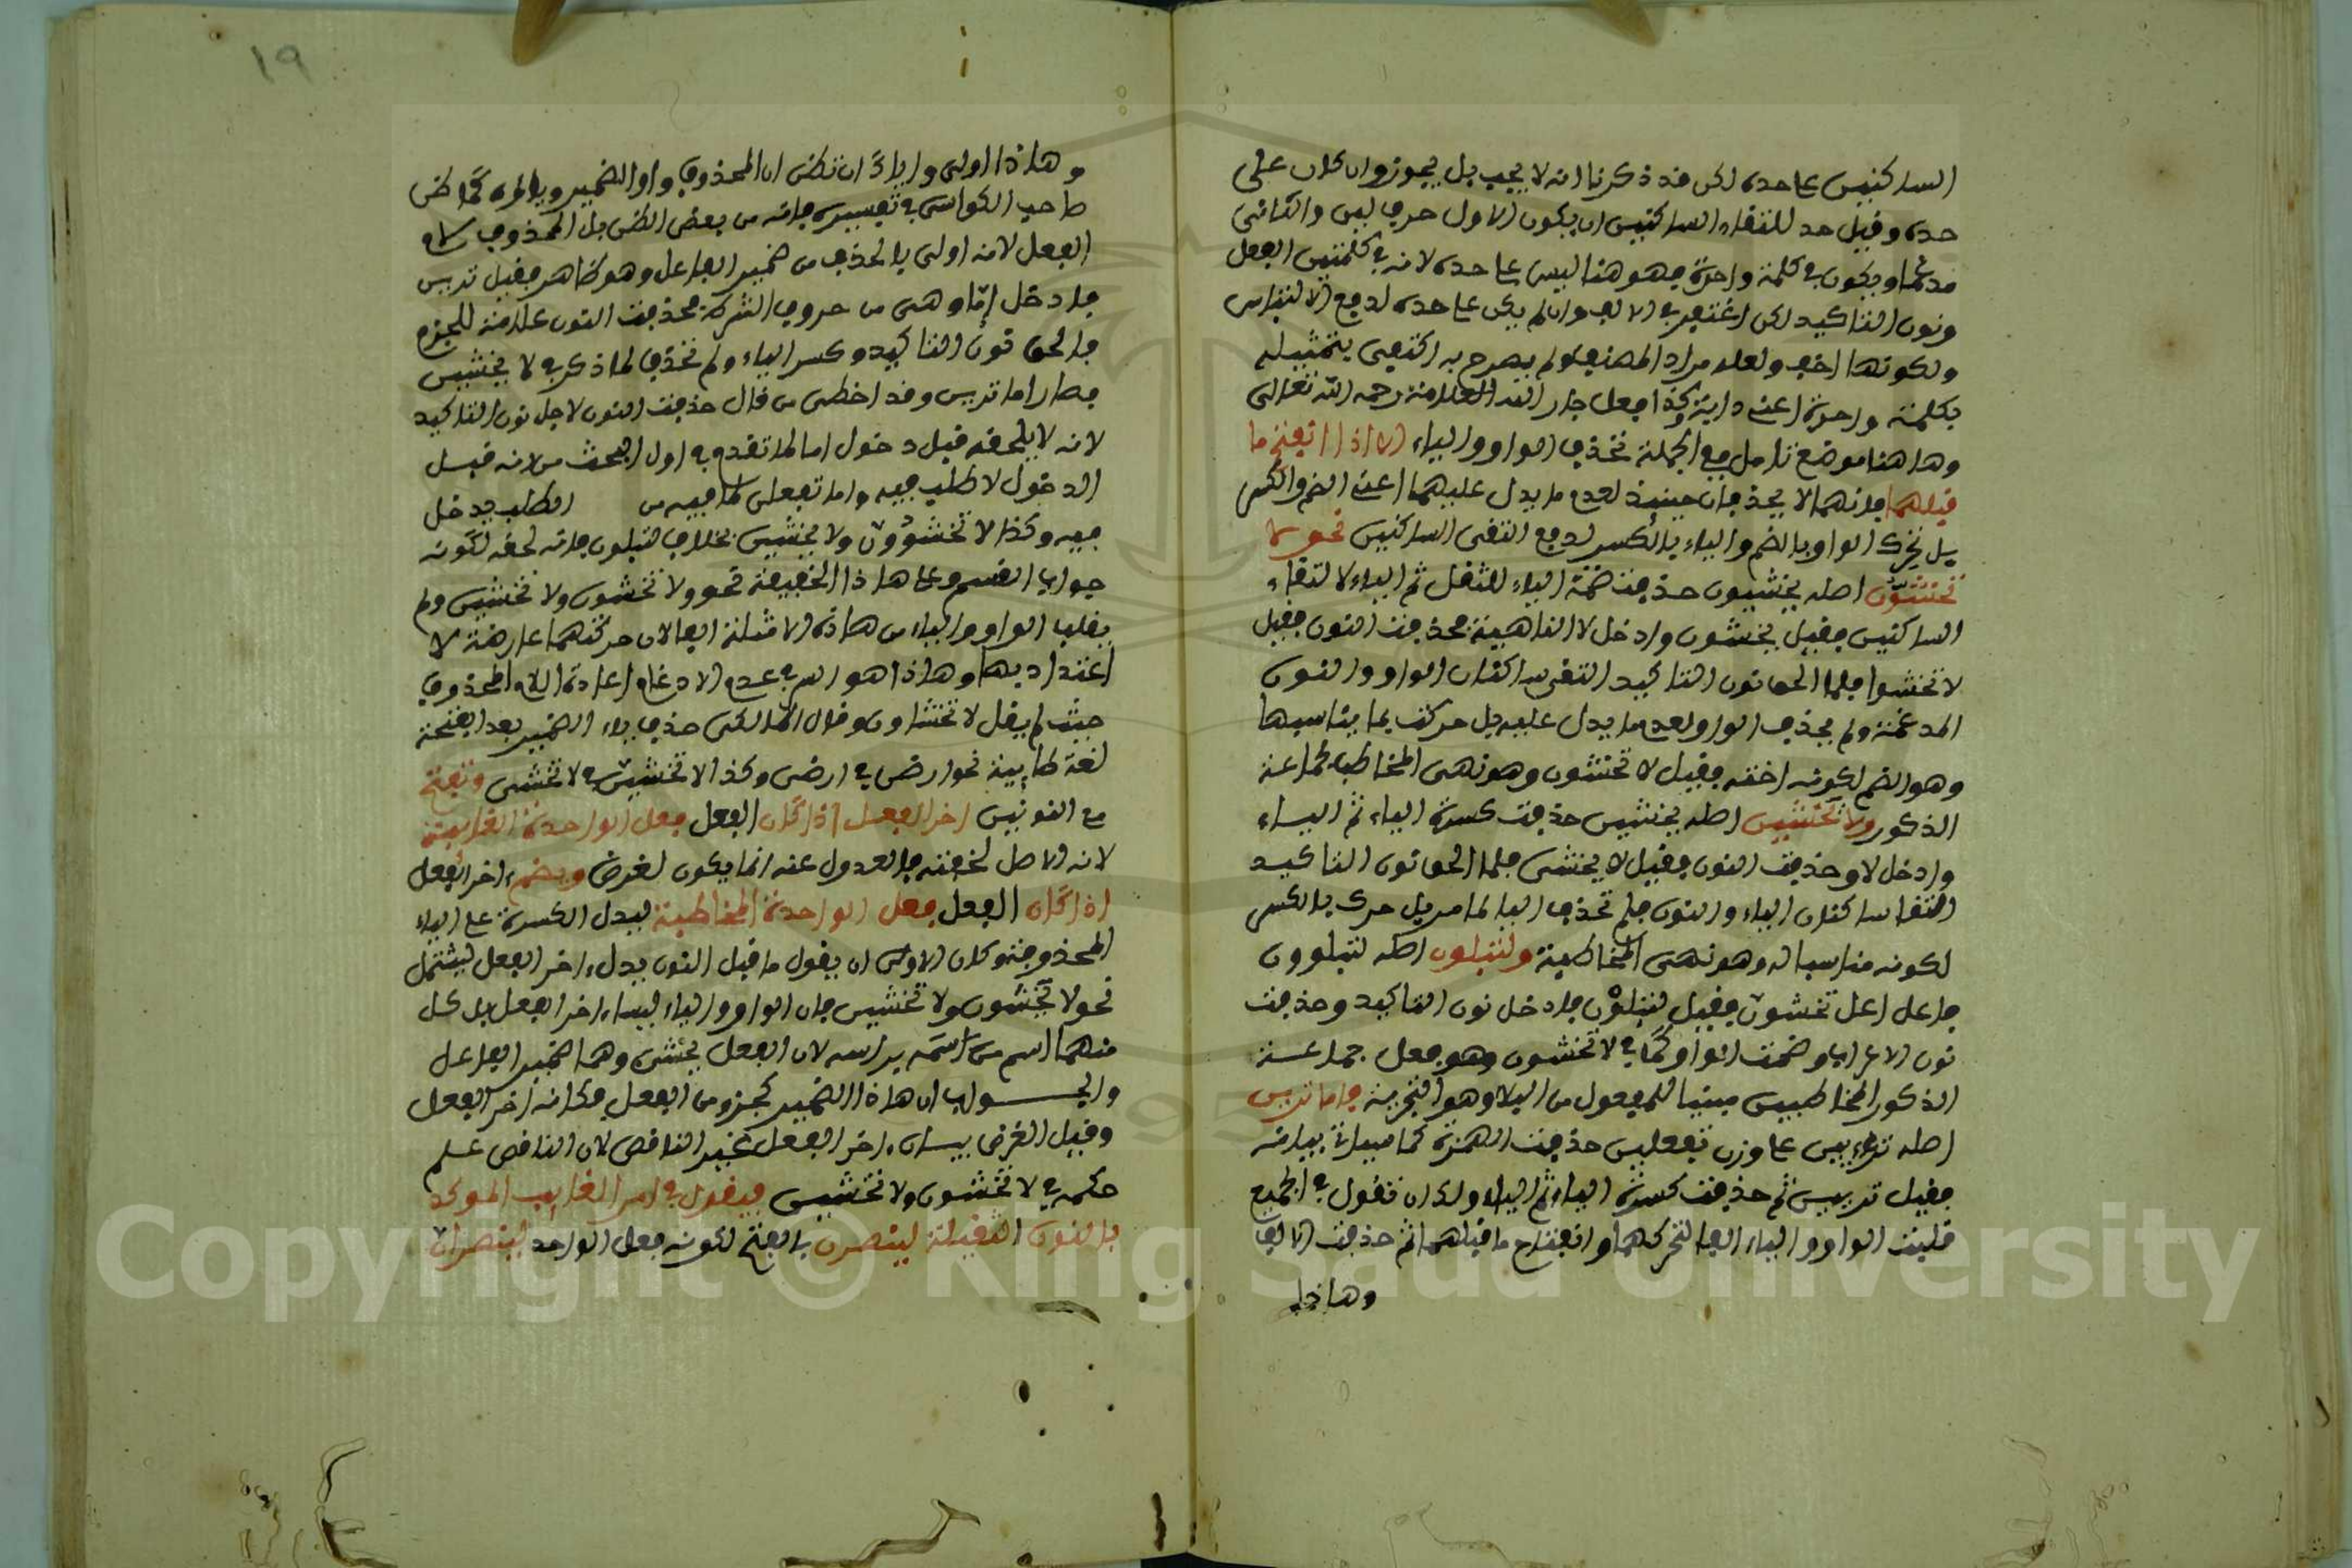 الساكنين على حده لكن قد ذكرنا انه لا يجب بل يجوز وان كان على
حده وقيل حد التقاء الساكنين ان يكون الاول حرف لين والثاني
مدغما ويكون في كلمة واحدة فهو هنا ليس على حده لانه في كلمتين الفعل
ونون التاكيد لكن اغتفر في الالف وان لم يكن على حده لدفع الالتباس
ولكونها اخف ولعله مراد المصنف ولم يصرح به اكتفى بتمثيله
بكلمة واحدة اعني دابة وكذا فعل جار الله العلامة رحمه الله تعالى
وهاهنا موضع تامل مع الجملة تحذف الواو والياء الا اذا انفتح ما
قبلهما فانهما لا يحذفان حينئذ لعدم ما يدل عليهما اعني الضم والكسر
بل تحرك الواو بالضم والياء بالكسر لدفع التقى الساكنين نحو لا
تخشون اصله يخشيون حذفت ضمة الياء للثقل ثم الياء لالتقاء
الساكنين فقيل يخشون وادخل لا الناهية فحذفت النون فقيل
لا تخشوا فلما الحق نون التاكيد التقى ساكنان الواو والنون
المدغمة ولم يحذف الواو لعدم ما يدل عليه بل حركت بما يناسبها
وهو الضم لكونه اخته فقيل لا تخشون وهو نهى المخاطب لجماعة
الذكور ولا تخشين اصله يخشيين حذفت كسرة الياء ثم الياء
وادخل لا وحذفت النون فقيل لا يخشى فلما الحق نون التاكيد
التقا ساكنان الياء والنون فلم تحذف اليا لما مر بل حرك بالكسر
لكونه مناسبا له وهو نهى المخاطبة ولتبلون اصله لتبلوون
فاعل اعل تخشون فقيل لتبلون فادخل نون التاكيد وحذفت
نون الاعراب وضمت الواو كما في لا تخشون وهو فعل جماعة
الذكور المخاطبين مبنيا للمفعول من البلا وهو التجربة فاما ترين
اصله تراييين على وزن تفعلين حذفت الهمزة كما سياتي بيانه
فقيل تريين ثم حذفت كسرة الياء ثم الياء ولك ان تقول في الجميع
قلبت الواو والياء الفا لتحركهما وانفتاح ما قبلهما ثم حذفت الالف
وهاذا
١٩
وهاذا اولى واياك ان تظن ان المحذوف واو الضمير وياؤه كما ظن
صاحب الكواشي في تفسيره فانه من بعض الظن بل المحذوف لام
الفعل لانه اولى بالحذف من ضمير الفاعل وهو ظاهر فقيل ترين
فادخل إمّا وهي من حروف الشرط فحذفت النون علامة للجزم
فالحق نون التاكيد وكسر الياء ولم تحذف لما ذكر في لا يخشين
فصار اما ترين وقد اخطى من قال حذفت النون لاجل نون التاكيد
لانه لا يلحقه قبل دخول اما لما تقدم في اول البحث من انه قبل
الدخول لا طلب فيه واما تفعلن فلما فيه من الطلب فدخل
فيه وكذا لا تخشوون ولا يخشين بخلاف لتبلون فانه لحقه لكونه
جواب القسم وعلى هاذا الخفيفة نحو ولا تخشون ولا تخشين ولم
يقلب الواو والياء من هاذه الامثلة الفا لان حركتهما عارضة لا
اعتداد بها وهاذا هو السر في عدم الادغام اعادة اللام المحذوف
حيث لم يقل لا تخشاون وقال المالكي حذف ياء الضمير بعد الفتحة
لغة طايية نحو ارضن في ارضين وكذا لا تخشين في لا تخشى وتفتح
مع النونين اخر الفعل اذا كان الفعل فعل الواحدة الغايبة
لانه الاصل لخفته فالعدول عنه انما يكون لغرض ويضم اخر الفعل
اذا كان الفعل فعل الواحدة المخاطبة ليدل الكسرة على الياء
المحذوفة وكان الاولى ان يقول ما قبل النون بدل اخر الفعل ليشتمل
نحو لا تخشون ولا تخشين فان الواو والياء ليسا اخر الفعل بل كل
منهما اسم براسه لان الفعل تخش وهما ضمير الفاعل
والجواب ان هاذا الضمير كجزو من الفعل فكانه اخر الفعل
وقيل الغرض بيان اخر الفعل غير الناقص لان الناقص علم
حكمه في لا تخشون ولا تخشين فيقول في امر الغايب الموكد
بالنون الثقيلة لينصرن بالفتح لكونه فعل الواحد لينصران